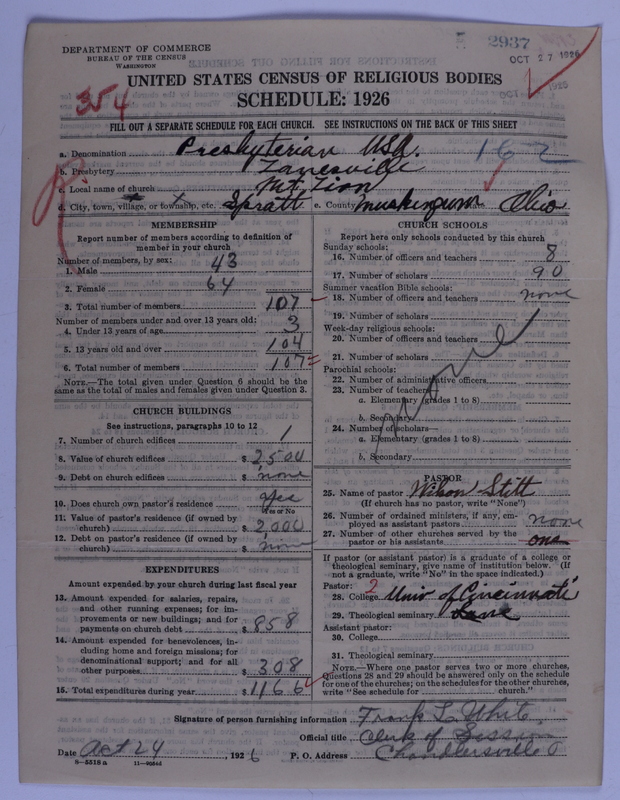 DEPARTMENT OF COMMERCE
BUREAU OF THE CENSUS
WASHINGTON
2937
OCT 27 1926
UNITED STATES CENSUS OF RELIGIOUS BODIES
SCHEDULE: 1926
354
FILL OUT A SEPARATE SCHEDULE FOR EACH CHURCH. SEE INSTRUCTIONS ON THE BACK OF THIS SHEET
a. Denomination Presbyterian USA.
162
b. Presbytery Zanesville
c. Local name of church Mt. Zion
d. City, town, village, or township, etc. Spratt e. County Muskingum State Ohio
MEMBERSHIP
Report number of members according to definition of member in your church
Number of members, by sex:
1. Male 43
2. Female 64
3. Total number of members 107
Number of members under and over 13 years old:
4. Under 13 years of age 3
5. 13 years old and over 104
6. Total number of members 107
NOTE.—The total given under Question 6 should be the same as the total of males and females given under Question 3.
CHURCH BUILDINGS
See instructions, paragraphs 10 to 12
7. Number of church edifices 1
8. Value of church edifices $ 2500
9. Debt on church edifices $ none
10. Does church own pastor's residence yes
Yes or No
11. Value of pastor's residence (if owned by church) $ 2,000
12. Debt on pastor's residence (if owned by church) $ none
EXPENDITURES
Amount expended by your church during last fiscal year
13. Amount expended for salaries, repairs, and other running expenses; for improvements or new buildings; and for payments on church debt $ 858
14. Amount expended for benevolences, including home and foreign missions; for denominational support; and for all other purposes $ 308
15. Total expenditures during year $ 1166
CHURCH SCHOOLS
Report here only schools conducted by this church
Sunday schools:
16. Number of officers and teachers 8
17. Number of scholars 90
Summer vacation Bible schools:
18. Number of officers and teachers none
19. Number of scholars
Week-day religious schools:
20. Number of officers and teachers
21. Number of scholars
none
Parochial schools:
22. Number of administrative officers
23. Number of teachers
a. Elementary (grades 1 to 8)
b. Secondary
24. Number of scholars—
a. Elementary (grades 1 to 8)
b. Secondary
PASTOR
25. Name of pastor Wilson Stitt
(If church has no pastor, write "None")
26. Number of ordained ministers, if any, employed as assistant pastors none
27. Number of other churches served by the pastor or his assistants one
If pastor (or assistant pastor) is a graduate of a college or theological seminary, give name of institution below. (If not a graduate, write "No" in the space indicated.)
Pastor: 2
28. College Univ of Cincinnati
29. Theological seminary Lane
Assistant pastor:
30. College
31. Theological seminary
NOTE.—Where one pastor serves two or more churches, Questions 28 and 29 should be answered only on the schedule for one of the churches; on the schedules for the other churches, write "See schedule for church."
Signature of person furnishing information Frank L. White
Official title Clerk of Session
Date Oct 24, 1926 P. O. Address Chandlersville O
8—5518 a